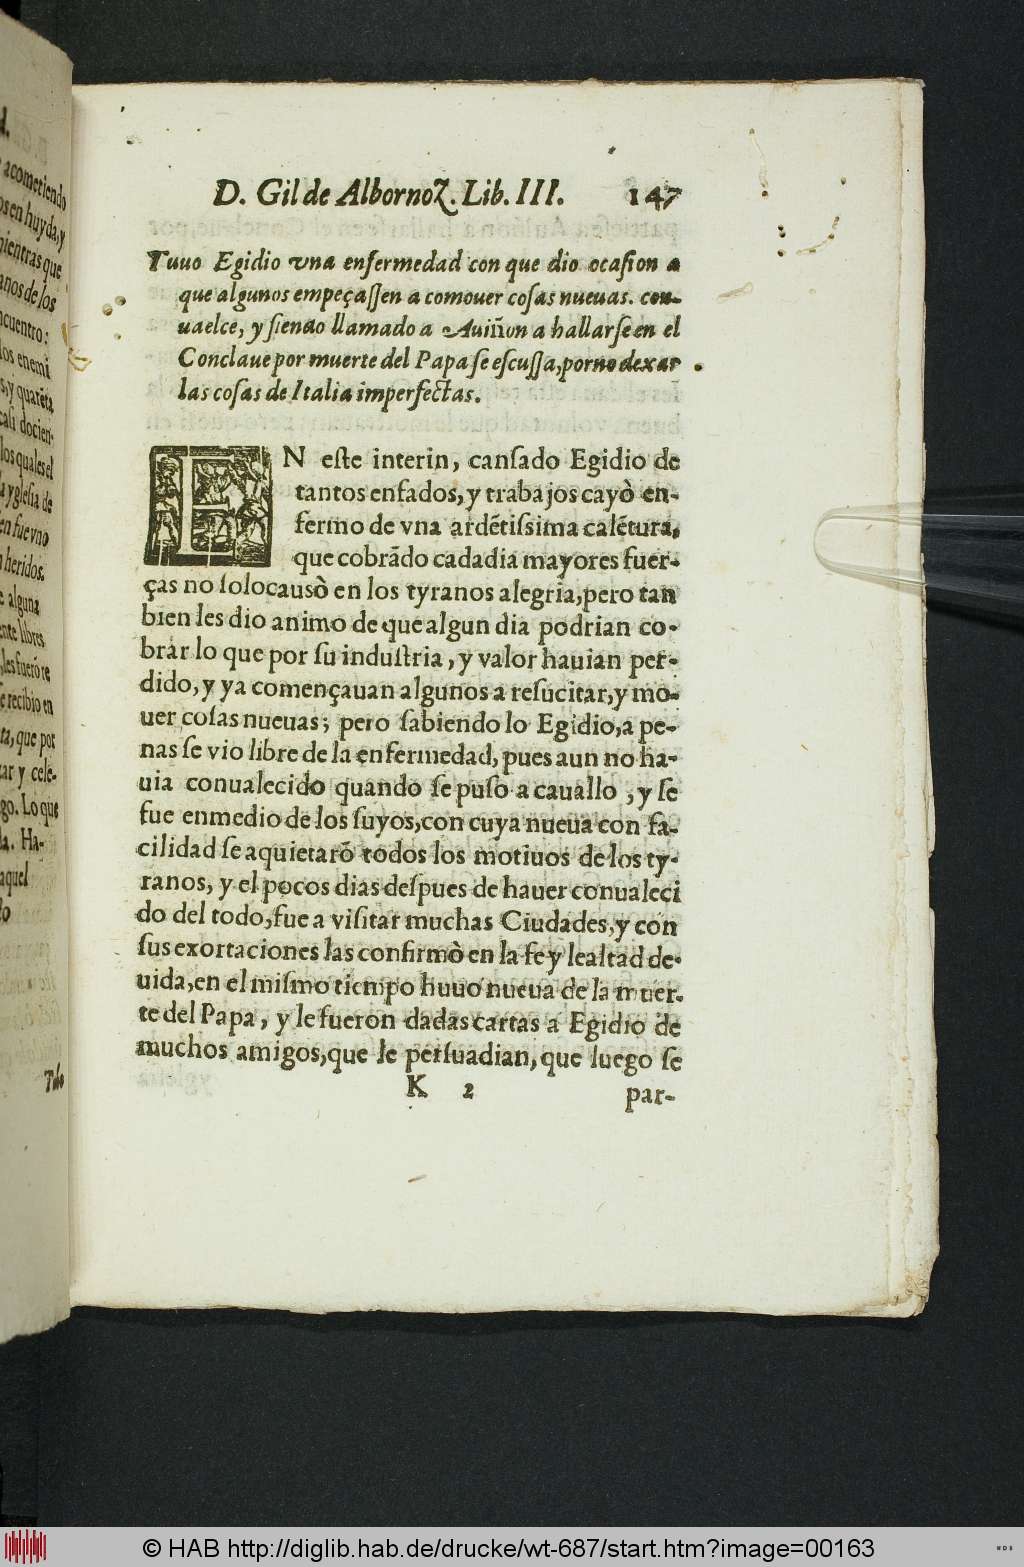 d.
acometiendo
osen huyda, y
mientras que
anos de los
ncuentro:
los enemi
s, y quarēta
cali docien-
los quales el
a yglesia de
en fue vno
n heridos.
e alguna
ente libres
, les fuerō re
e recibio en
ta, que por
zar y cele-
go. Lo que
la. Ha-
aquel
do
D. Gil de Albornoz. Lib. III. 147
Tuuo Egidio vna enfermedad con que dio ocasion a
que algunos empeçassen a comouer cosas nueuas. con-
ualece, y siendo llamado a Auiñon a hallarse en el
Conclaue por muerte del Papa se escussa, por no dexar
las cosas de Italia imperfectas.
EN este interin, cansado Egidio de
tantos enfados, y trabajos cayò en-
fermo de vna ardētissima calētura,
que cobrādo cada dia mayores fuer-
ças no solo causò en los tyranos alegria, pero tan
bien les dio animo de que algun dia podrian co-
brar lo que por su industria, y valor hauian per-
dido, y ya començauan algunos a resucitar, y mo-
uer cosas nueuas; pero sabiendo lo Egidio, a pe-
nas se vio libre de la enfermedad, pues aun no ha-
uia conualecido quando se puso a cauallo, y se
fue enmedio de los suyos, con cuya nueua con fa-
cilidad se aquietarō todos los motiuos de los ty-
ranos, y el pocos dias despues de hauer conualeci
do del todo, fue a visitar muchas Ciudades, y con
sus exortaciones las confirmò en la fe y lealtad de-
uida, en el mismo tiempo huuo nueua de la muer-
te del Papa, y le fueron dadas cartas a Egidio de
muchos amigos, que le persuadian, que luego se
K 2 par-
© HAB http://diglib.hab.de/drucke/wt-687/start.htm?image=00163